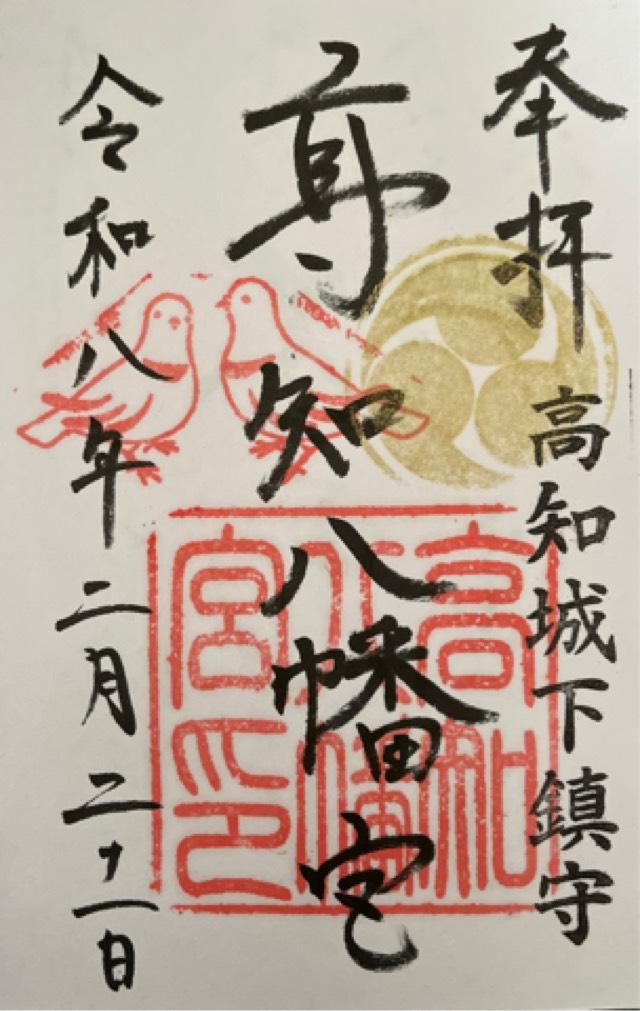 奉拝 高知城下鎮守
高知八幡宮
令和八年二月二十一日
高知
八幡
宮印